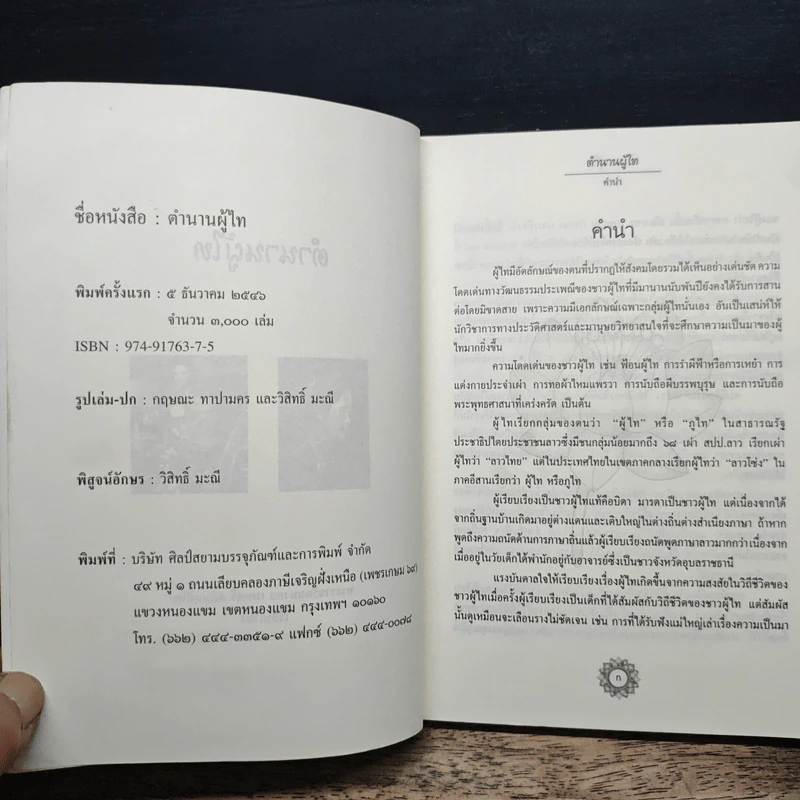 ชื่อหนังสือ : ตำนานผู้ไท
พิมพ์ครั้งแรก : ๕ ธันวาคม ๒๕๔๖
จำนวน ๓,๐๐๐ เล่ม
ISBN : 974-91763-7-5
รูปเล่ม-ปก : กฤษณะ ทาปามคร และวิสิทธิ์ มะณี
พิสูจน์อักษร : วิสิทธิ์ มะณี
พิมพ์ที่ : บริษัท ศิลป์สยามบรรจุภัณฑ์และการพิมพ์ จำกัด
๔๙ หมู่ ๑ ถนนเลียบคลองภาษีเจริญฝั่งเหนือ (เพชรเกษม ๖๙)
แขวงหนองแขม เขตหนองแขม กรุงเทพฯ ๑๐๑๖๐
โทร. (๖๖๒) ๔๔๔-๓๓๕๑-๙ แฟกซ์ (๖๖๒) ๔๔๔-๐๐๗๘
ตำนานผู้ไท
คำนำ
คำนำ
ผู้ไทมีอัตลักษณ์ของตนที่ปรากฏให้สังคมโดยรวมได้เห็นอย่างเด่นชัด ความ
โดดเด่นทางวัฒนธรรมประเพณีของชาวผู้ไทที่มีมานานนับพันปียังคงได้รับการสาน
ต่อโดยมิขาดสาย เพราะความมีเอกลักษณ์เฉพาะกลุ่มผู้ไทนั่นเอง อันเป็นเสน่ห์ให้
นักวิชาการทางประวัติศาสตร์และมานุษยวิทยาสนใจที่จะศึกษาความเป็นมาของผู้
ไทมากยิ่งขึ้น
ความโดดเด่นของชาวผู้ไท เช่น ฟ้อนผู้ไท การรำผีฟ้าหรือการเหยา การ
แต่งกายประจำเผ่า การทอผ้าไหมแพรวา การนับถือผีบรรพบุรุษ และการนับถือ
พระพุทธศาสนาที่เคร่งครัด เป็นต้น
ผู้ไทเรียกกลุ่มของตนว่า “ผู้ไท” หรือ “ภูไท” ในสาธารณรัฐ
ประชาธิปไตยประชาชนลาวซึ่งมีชนกลุ่มน้อยมากถึง ๖๘ เผ่า สปป.ลาว เรียกเผ่า
ผู้ไทว่า “ลาวไทย” แต่ในประเทศไทยในเขตภาคกลางเรียกผู้ไทว่า “ลาวโซ่ง” ใน
ภาคอีสานเรียกว่า ผู้ไท หรือภูไท
ผู้เรียบเรียงเป็นชาวผู้ไทแท้คือบิดา มารดาเป็นชาวผู้ไท แต่เนื่องจากได้
จากถิ่นฐานบ้านเกิดมาอยู่ต่างแดนและเติบใหญ่ในต่างถิ่นต่างสำเนียงภาษา ถ้าหาก
พูดถึงความถนัดด้านการภาษาถิ่นแล้วผู้เรียบเรียงถนัดพูดภาษาลาวมากกว่า เนื่องจาก
เมื่ออยู่ในวัยเด็กได้พำนักอยู่กับอาจารย์ซึ่งเป็นชาวจังหวัดอุบลราชธานี
แรงบันดาลใจให้เรียบเรียงเรื่องผู้ไทเกิดขึ้นจากความสงสัยในวิถีชีวิตของ
ชาวผู้ไทเมื่อครั้งผู้เรียบเรียงเป็นเด็กที่ได้สัมผัสกับวิถีชีวิตของชาวผู้ไท แต่สัมผัส
นั้นดูเหมือนจะเลือนรางไม่ชัดเจน เช่น การที่ได้รับฟังแม่ใหญ่เล่าเรื่องความเป็นมา
ก